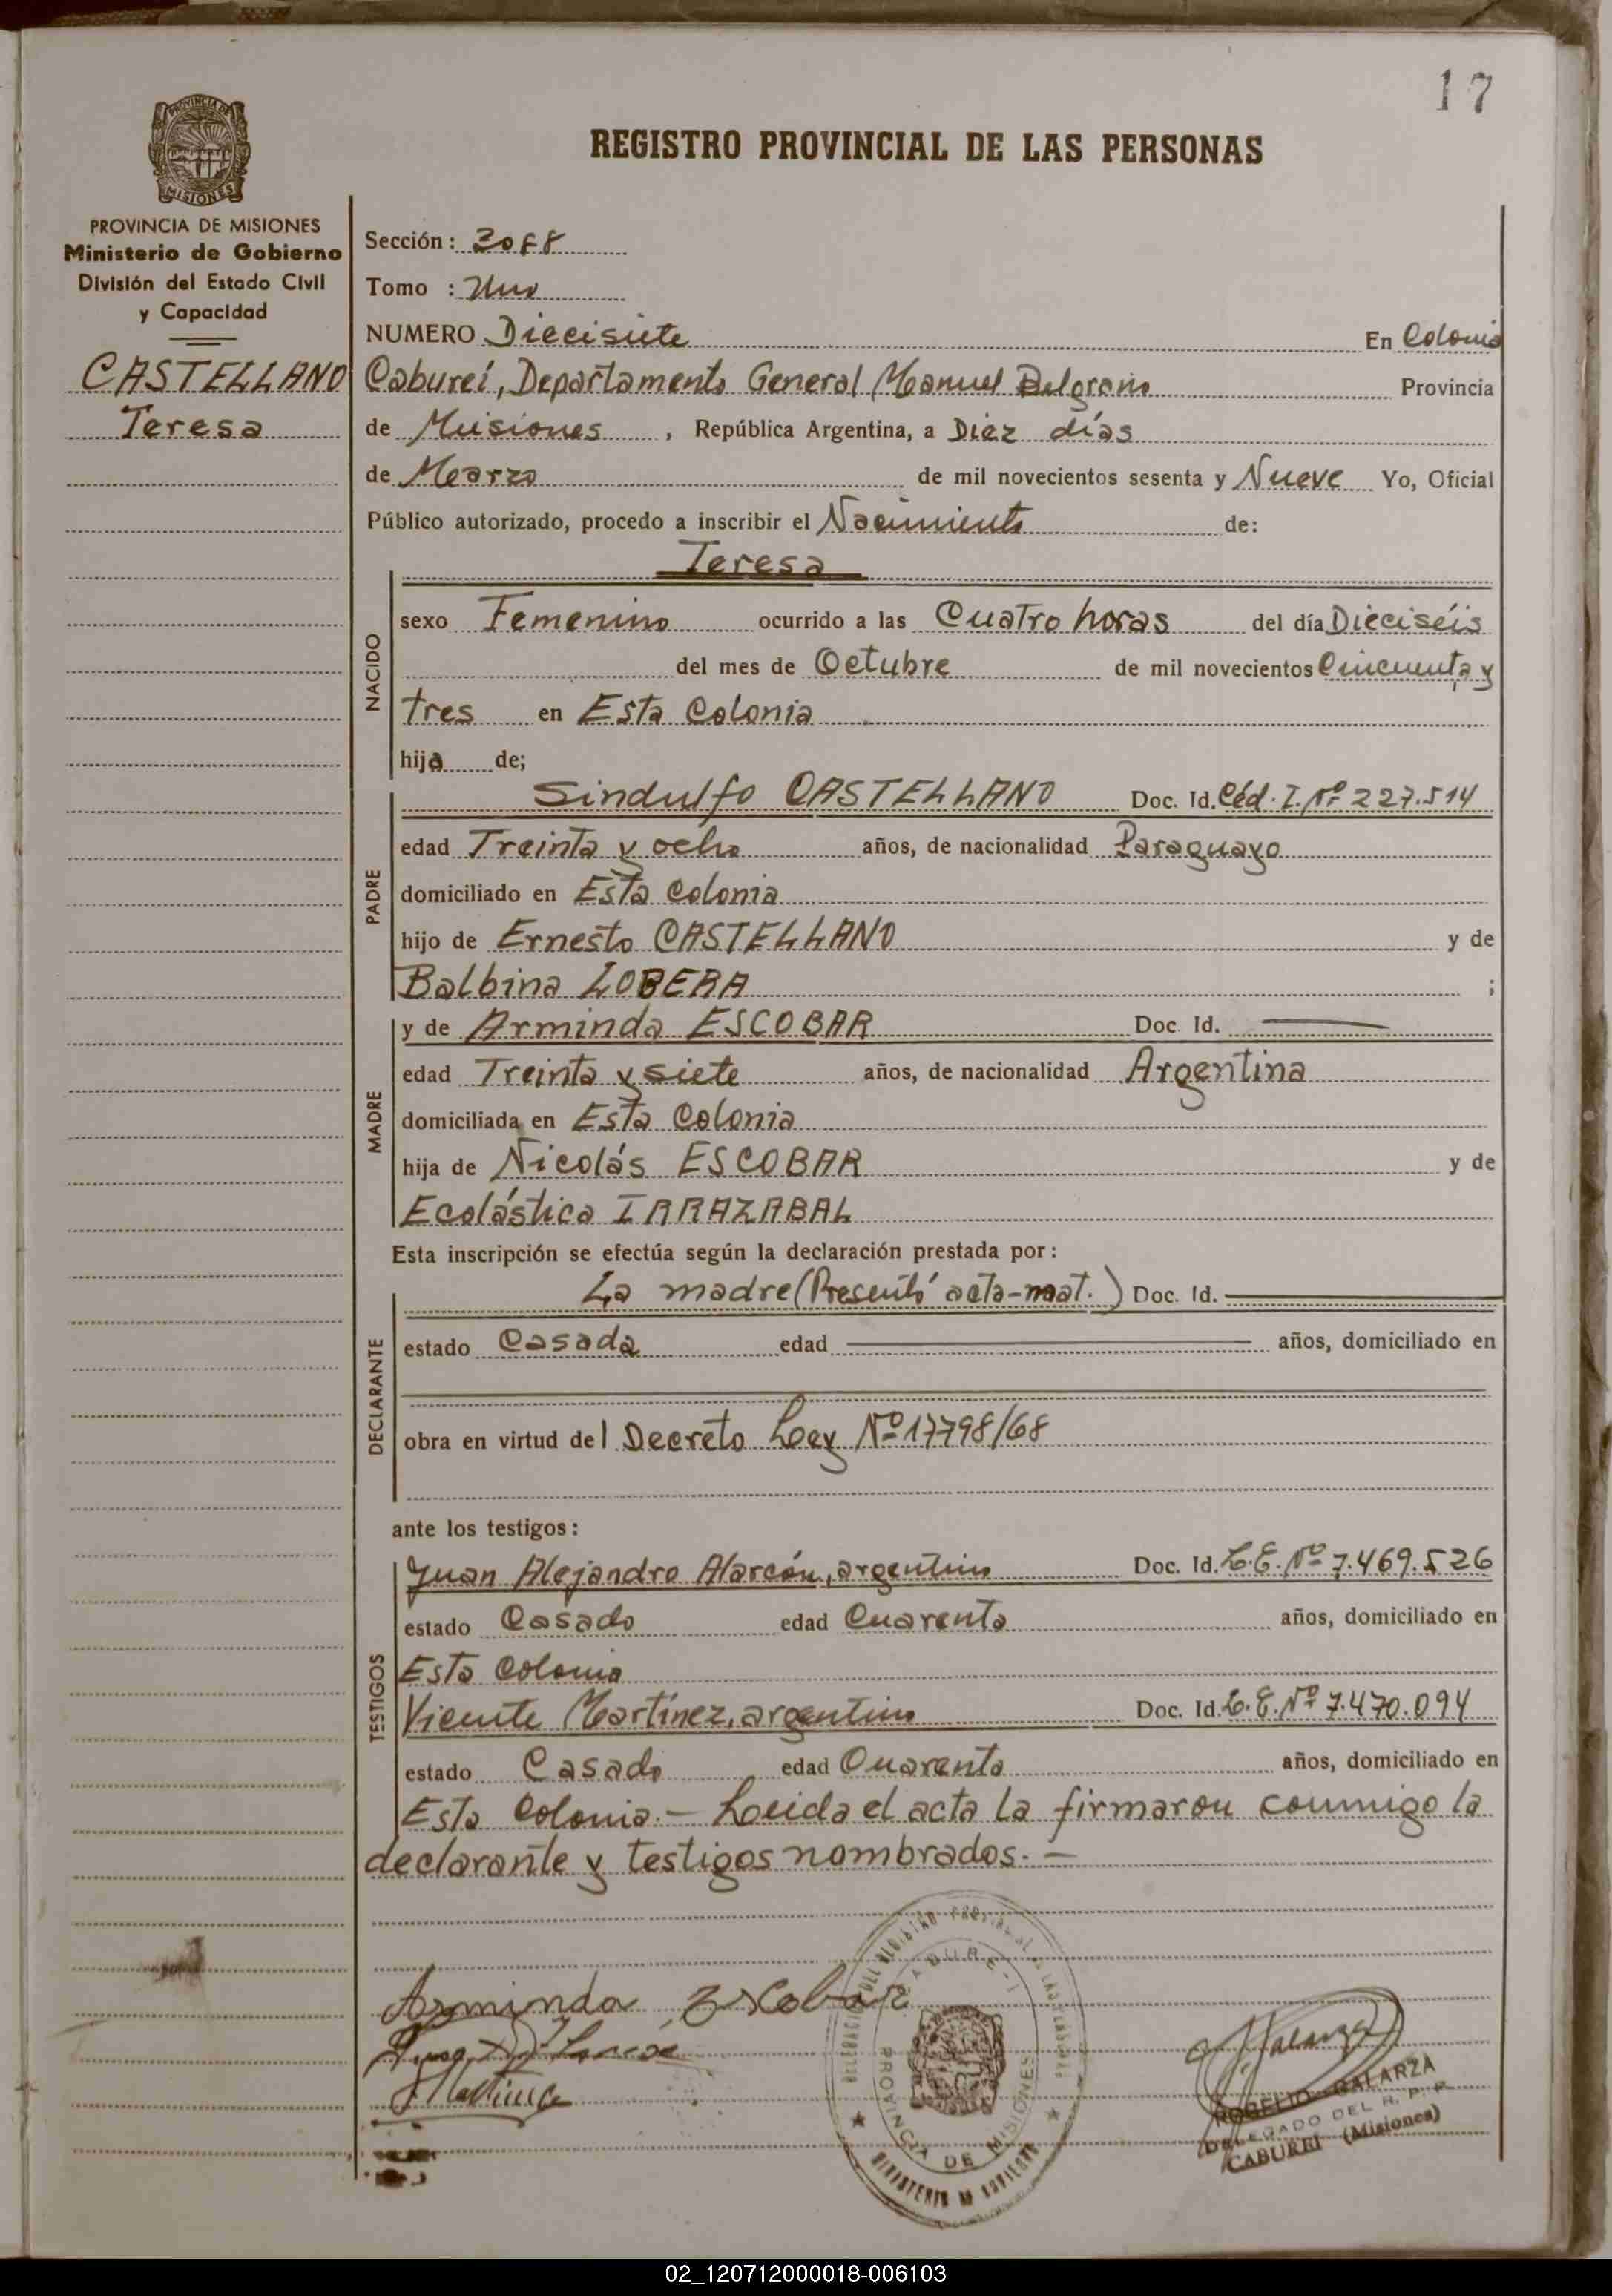 17
REGISTRO PROVINCIAL DE LAS PERSONAS
PROVINCIA DE MISIONES
Ministerio de Gobierno
División del Estado Civil
y Capacidad
CASTELLANO
Teresa
Sección:
Tomo : Uno
NUMERO Diecisiete En Colonia
Caburei, Departamento General Manuel Belgrano Provincia
de Misiones , República Argentina, a Diez días
de Marzo de mil novecientos sesenta y Nueve Yo, Oficial
Público autorizado, procedo a inscribir el Nacimiento de:
Teresa
NACIDO
sexo Femenino ocurrido a las Cuatro horas del día Dieciséis
del mes de Octubre de mil novecientos Cincuenta y
tres en Esta Colonia
hija de;
PADRE
Sindulfo CASTELLANO Doc. Id. Céd. I. Nº 227.514
edad Treinta y ocho años, de nacionalidad Paraguayo
domiciliado en Esta Colonia
hijo de Ernesto CASTELLANO y de
Balbina LOBERA ;
MADRE
y de Arminda ESCOBAR Doc. Id. —
edad Treinta y siete años, de nacionalidad Argentina
domiciliada en Esta Colonia
hija de Nicolás ESCOBAR y de
Ecolástica IRRAZABAL
Esta inscripción se efectúa según la declaración prestada por:
DECLARANTE
La madre (Presentó acta-mat.) Doc. Id. —
estado Casada edad — años, domiciliado en
obra en virtud del Decreto Ley Nº 17798/68
ante los testigos:
TESTIGOS
Juan Alejandro Alarcón, argentino Doc. Id. L.E. Nº 7.469.526
estado Casado edad Cuarenta años, domiciliado en
Esta Colonia
Vicente Martínez, argentino Doc. Id. L.E. Nº 7.470.094
estado Casado edad Cuarenta años, domiciliado en
Esta Colonia.- Leida el acta la firmaron conmigo la
declarante y testigos nombrados.-
Arminda Escobar
PROVINCIA DE MISIONES
MINISTERIO DE GOBIERNO
ROGELIO GALARZA
DELEGADO DEL R. P. P.
CABUREI (Misiones)
02_120712000018-006103